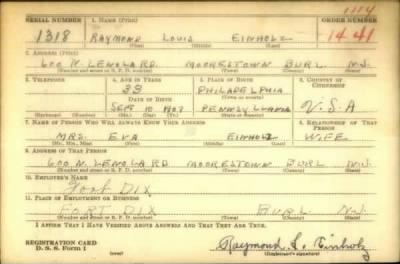 1114
SERIAL NUMBER 1. NAME (Print) ORDER NUMBER
1318 RAYMOND LOUIS EINHOLZ 1441
(First) (Middle) (Last)
2. ADDRESS (Print)
600 N. LENOLA RD. MOORESTOWN BURL N.J.
(Number and street or R. F. D. number) (Town) (County) (State)
3. TELEPHONE 4. AGE IN YEARS 5. PLACE OF BIRTH 6. COUNTRY OF CITIZENSHIP
33 PHILADELPHIA
DATE OF BIRTH (Town or county)
SEPT 10 1907 PENNSYLVANIA U.S.A
(Mo.) (Day) (Yr.) (State or country)
7. NAME OF PERSON WHO WILL ALWAYS KNOW YOUR ADDRESS 8. RELATIONSHIP OF THAT PERSON
MRS. EVA EINHOLZ WIFE
(Mr., Mrs., Miss) (First) (Middle) (Last)
9. ADDRESS OF THAT PERSON
600 N. LENOLA RD. MOORESTOWN BURL N.J.
(Number and street or R. F. D. number) (Town) (County) (State)
10. EMPLOYER'S NAME
Fort Dix
11. PLACE OF EMPLOYMENT OR BUSINESS
FORT DIX BURL N.J.
(Number and street or R. F. D. number) (Town) (County) (State)
I AFFIRM THAT I HAVE VERIFIED ABOVE ANSWERS AND THAT THEY ARE TRUE.
REGISTRATION CARD
D. S. S. Form 1 (over) Raymond L. Einholz
(Registrant's signature)